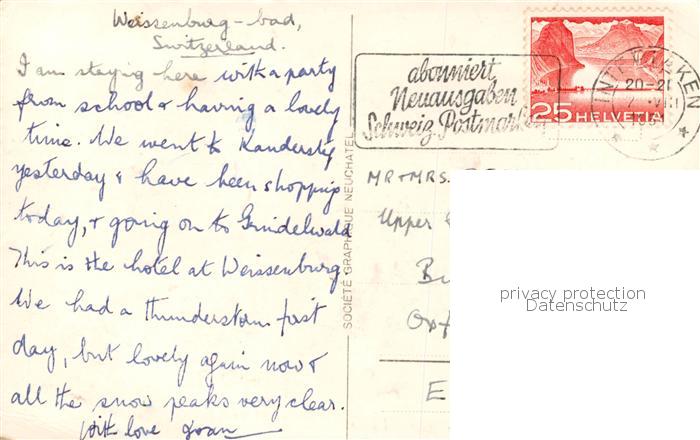 Weissenburg-bad,
Switzerland.
I am staying here with a party
from school & having a lovely
time. We went to Kandersty
yesterday & have been shopping
today, & going on to Grindelwald
This is the hotel at Weissenburg.
We had a thunderstorm first
day, but lovely again now &
all the snow peaks very clear.
With love Joan
SOCIÉTÉ GRAPHIQUE NEUCHATEL
abonniert
Neuausgaben
Schweiz. Postmarken
25 HELVETIA
INTERLAKEN
20-21
MR & MRS.
Upper
Oxf
E
privacy protection
Datenschutz